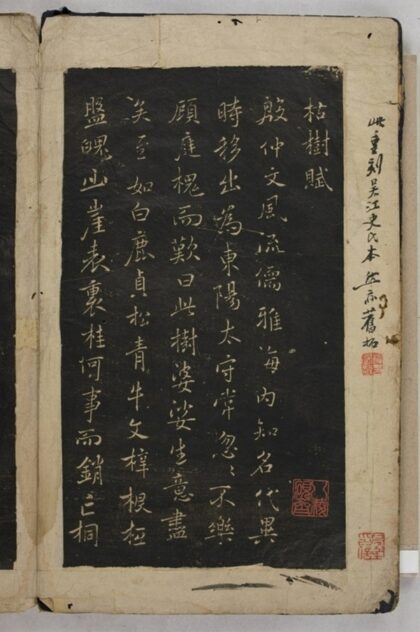 此重刻吴江史氏本然亦舊拓
枯樹賦
殷仲文風流儒雅海内知名代異
時移出為東陽太守常忽〻不樂
顧庭槐而歎曰此樹婆娑生意盡
矣至如白鹿貞松青牛文梓根柢
盤魄山崖表裏桂何事而銷亡桐